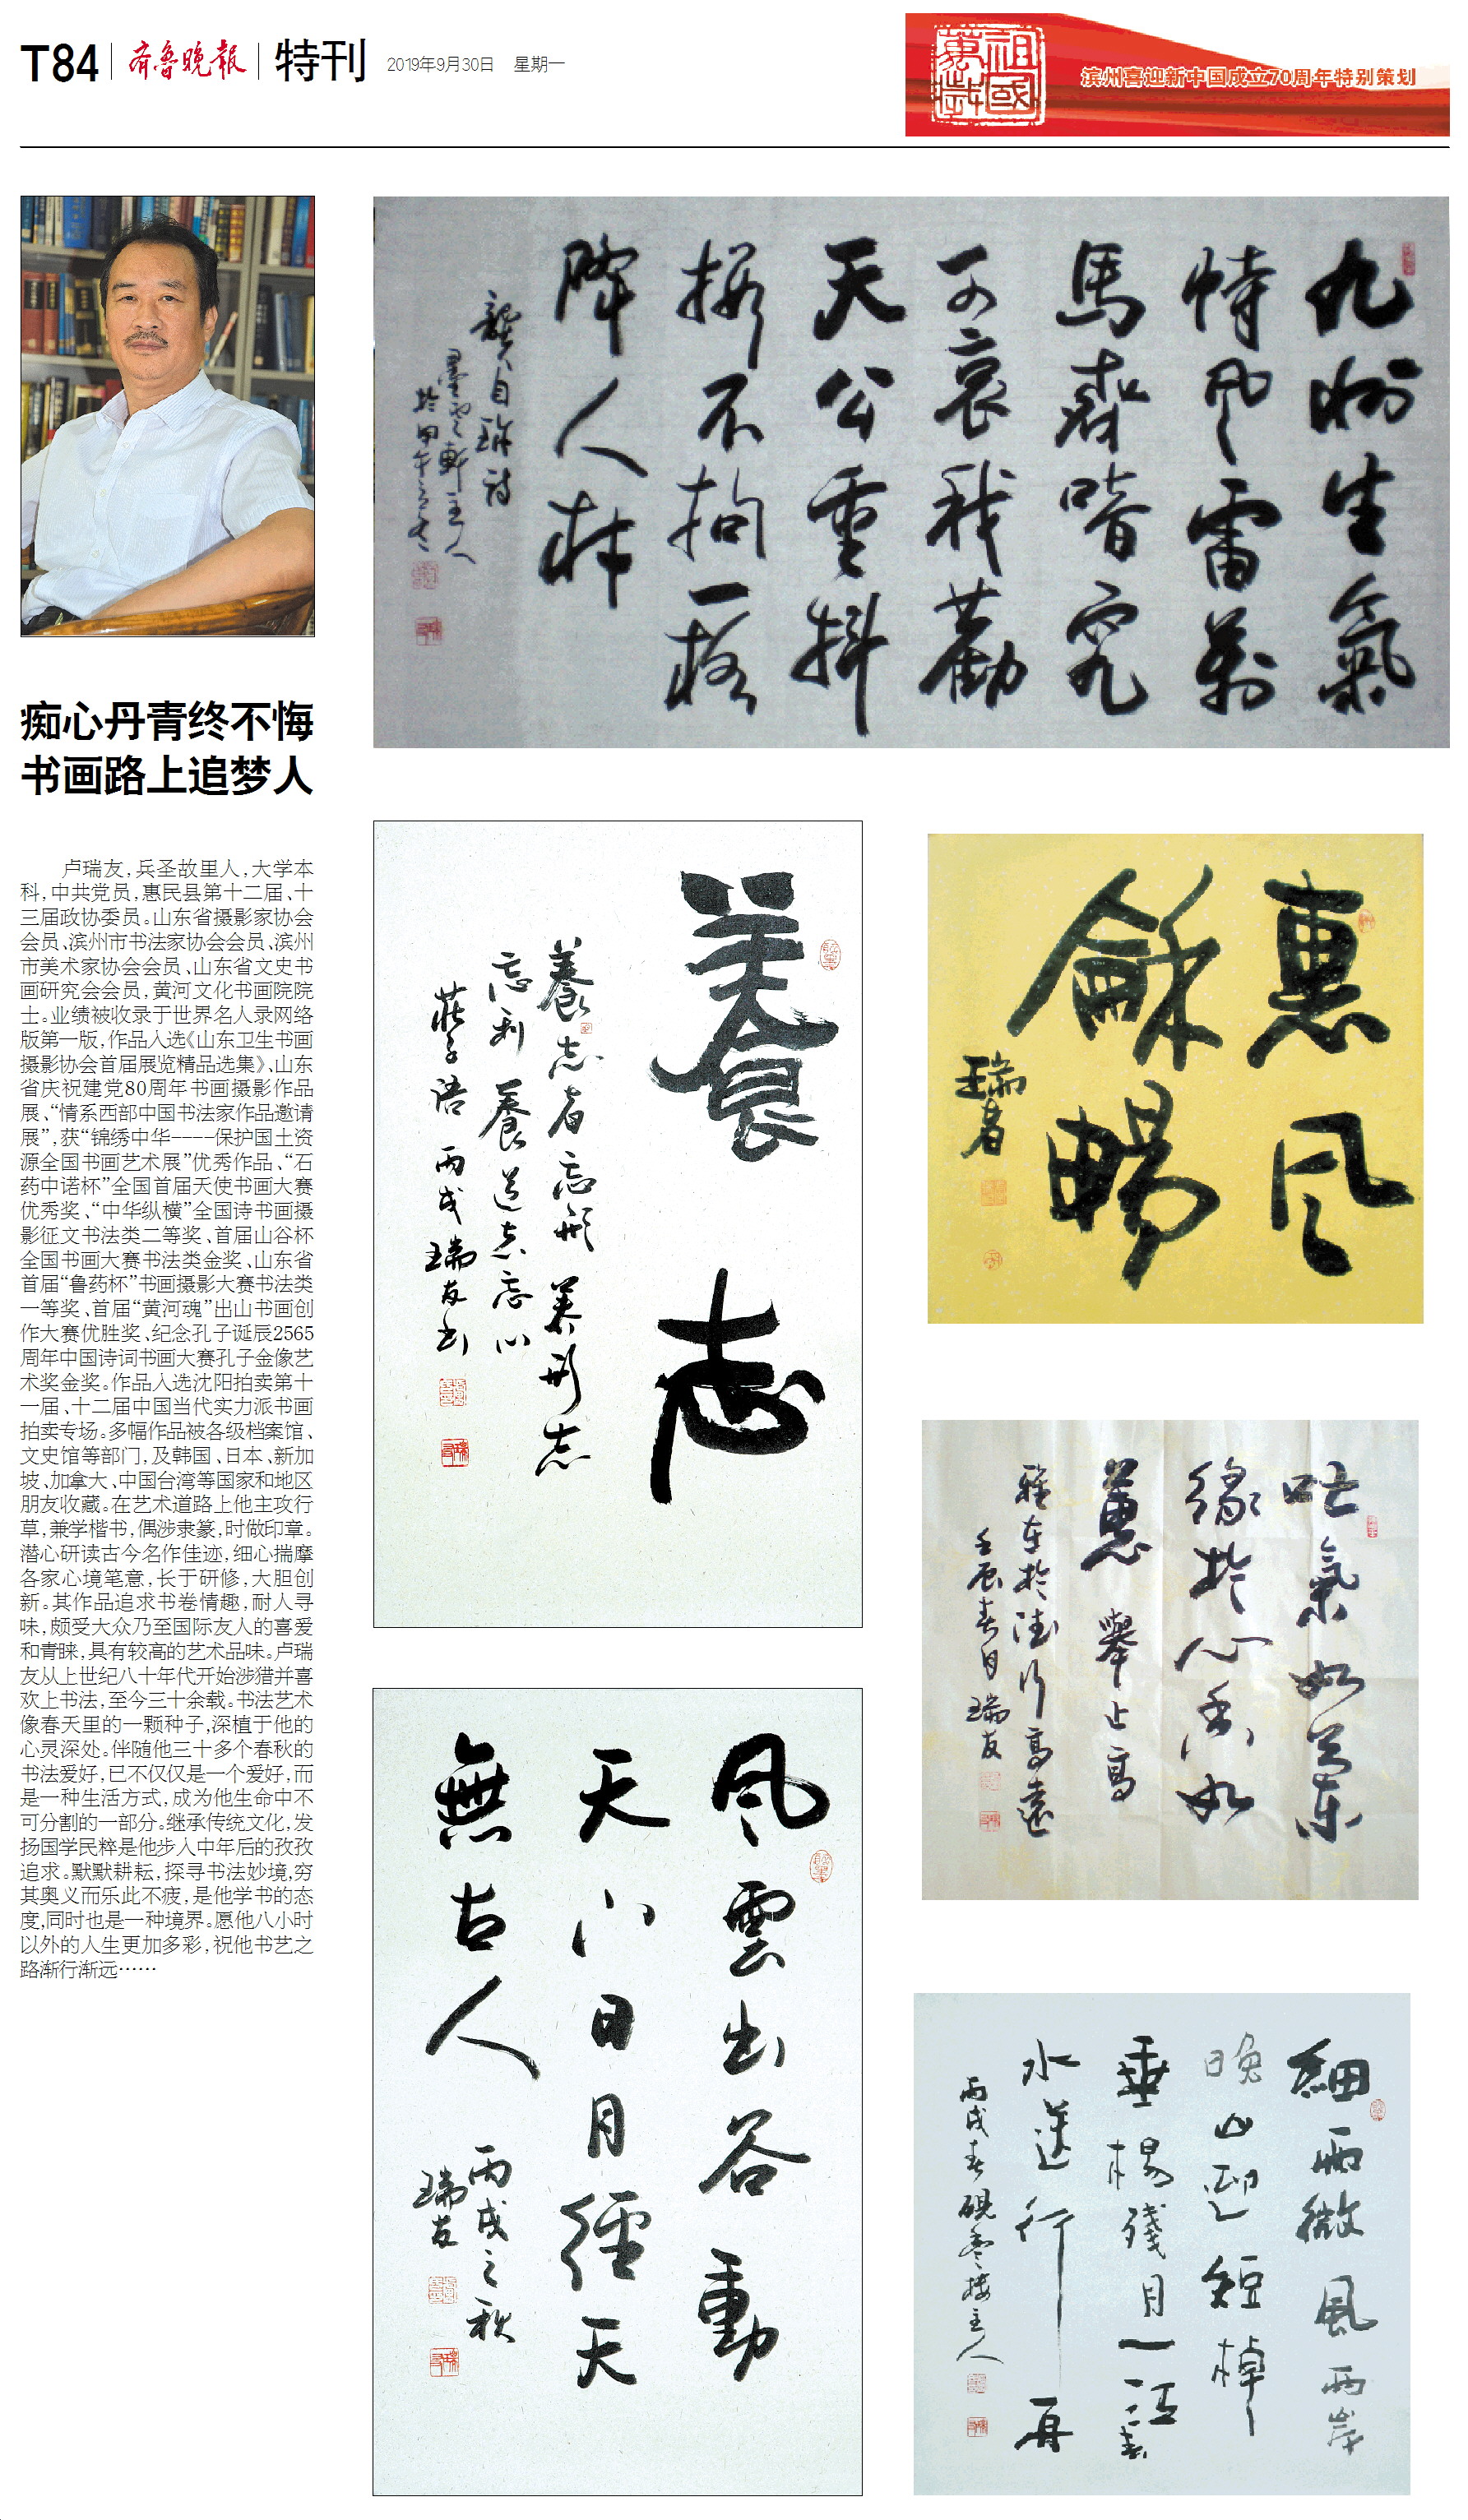 T84 齐鲁晚报 特刊 2019年9月30日 星期一
祖國萬歲
滨州喜迎新中国成立70周年特别策划
痴心丹青终不悔
书画路上追梦人
卢瑞友,兵圣故里人,大学本
科,中共党员,惠民县第十二届、十
三届政协委员。山东省摄影家协会
会员、滨州市书法家协会会员、滨州
市美术家协会会员、山东省文史书
画研究会会员,黄河文化书画院院
士。业绩被收录于世界名人录网络
版第一版,作品入选《山东卫生书画
摄影协会首届展览精品选集》、山东
省庆祝建党80周年书画摄影作品
展、“情系西部中国书法家作品邀请
展”,获“锦绣中华----保护国土资
源全国书画艺术展”优秀作品、“石
药中诺杯”全国首届天使书画大赛
优秀奖、“中华纵横”全国诗书画摄
影征文书法类二等奖、首届山谷杯
全国书画大赛书法类金奖、山东省
首届“鲁药杯”书画摄影大赛书法类
一等奖、首届“黄河魂”出山书画创
作大赛优胜奖、纪念孔子诞辰2565
周年中国诗词书画大赛孔子金像艺
术奖金奖。作品入选沈阳拍卖第十
一届、十二届中国当代实力派书画
拍卖专场。多幅作品被各级档案馆、
文史馆等部门,及韩国、日本、新加
坡、加拿大、中国台湾等国家和地区
朋友收藏。在艺术道路上他主攻行
草,兼学楷书,偶涉隶篆,时做印章。
潜心研读古今名作佳迹,细心揣摩
各家心境笔意,长于研修,大胆创
新。其作品追求书卷情趣,耐人寻
味,颇受大众乃至国际友人的喜爱
和青睐,具有较高的艺术品味。卢瑞
友从上世纪八十年代开始涉猎并喜
欢上书法,至今三十余载。书法艺术
像春天里的一颗种子,深植于他的
心灵深处。伴随他三十多个春秋的
书法爱好,已不仅仅是一个爱好,而
是一种生活方式,成为他生命中不
可分割的一部分。继承传统文化,发
扬国学民粹是他步入中年后的孜孜
追求。默默耕耘,探寻书法妙境,穷
其奥义而乐此不疲,是他学书的态
度,同时也是一种境界。愿他八小时
以外的人生更加多彩,祝他书艺之
路渐行渐远……
九州生氣
恃風雷萬
馬齊喑究
可哀我勸
天公重抖
擞不拘一格
降人材
龔自珍詩
墨雲軒主人
於甲午之冬
養志
養志者忘形 养形者
忘利 養道者忘心
莊子語 丙戌 瑞友书
惠风
龢暢
瑞友
吐氣如兰東
緣於心香如
蕙 舉止高
雅在於德行高遠
壬辰春月 瑞友
风雲出谷動
天心日月經天
無古人
丙戌之秋
瑞友
細雨微風两岸
晚山迎短棹
垂楊殘月一江春
水送行舟
丙戌春 硯雲樓主人